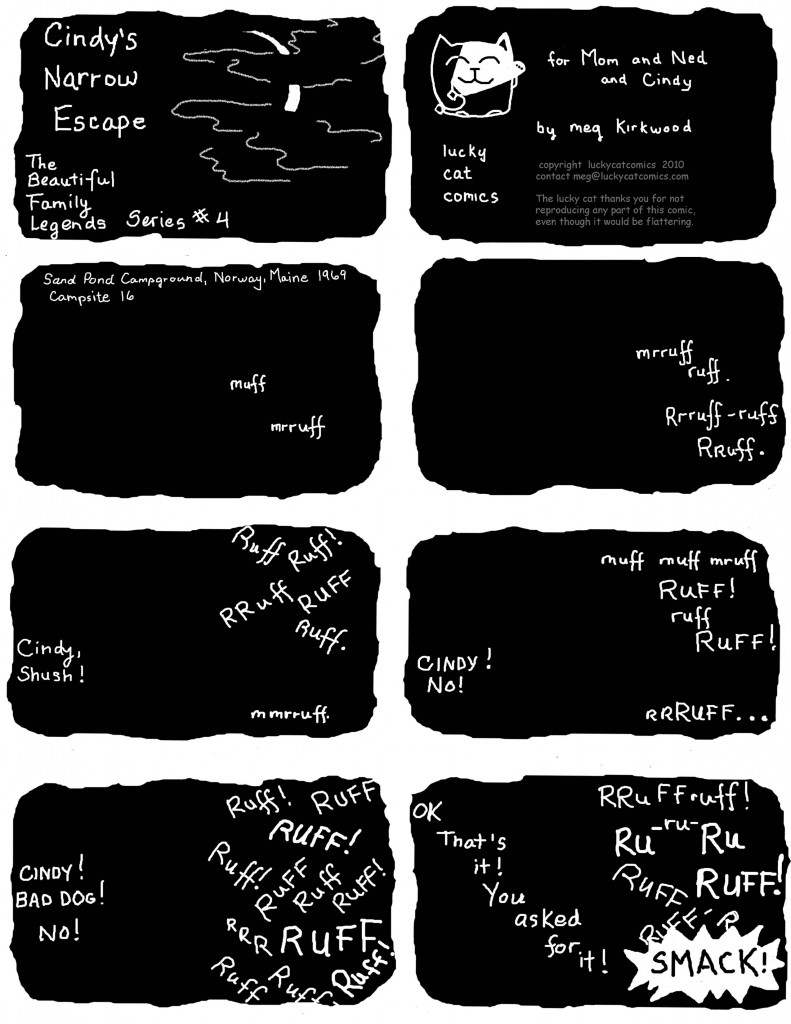 Cindy's
Narrow
Escape
The
Beautiful
Family
Legends Series #4
for Mom and Ned
and Cindy
by meg Kirkwood
lucky
cat
comics
copyright luckycatcomics 2010
contact meg@luckycatcomics.com
The lucky cat thanks you for not
reproducing any part of this comic,
even though it would be flattering.
Sand Pond Campground, Norway, Maine 1969
Campsite 16
muff
mrruff
mrruff
ruff.
Rrruff-ruff
RRuff.
Ruff Ruff!
RRuff RUFF
Ruff.
Cindy,
Shush!
mmrruff.
muff muff mruff
RUFF!
ruff
RUFF!
CINDY!
NO!
RRRUFF...
Ruff! RUFF
RUFF!
Ruff! RUFF Ruff RUFF!
CINDY!
BAD DOG!
NO!
RRR RUFF
Ruff Ruff! Ruff!
OK
That's
it!
You
asked
for
it!
RRuFFruff!
Ru-ru-Ru
RUFF RUFF!
RUFF-R
SMACK!